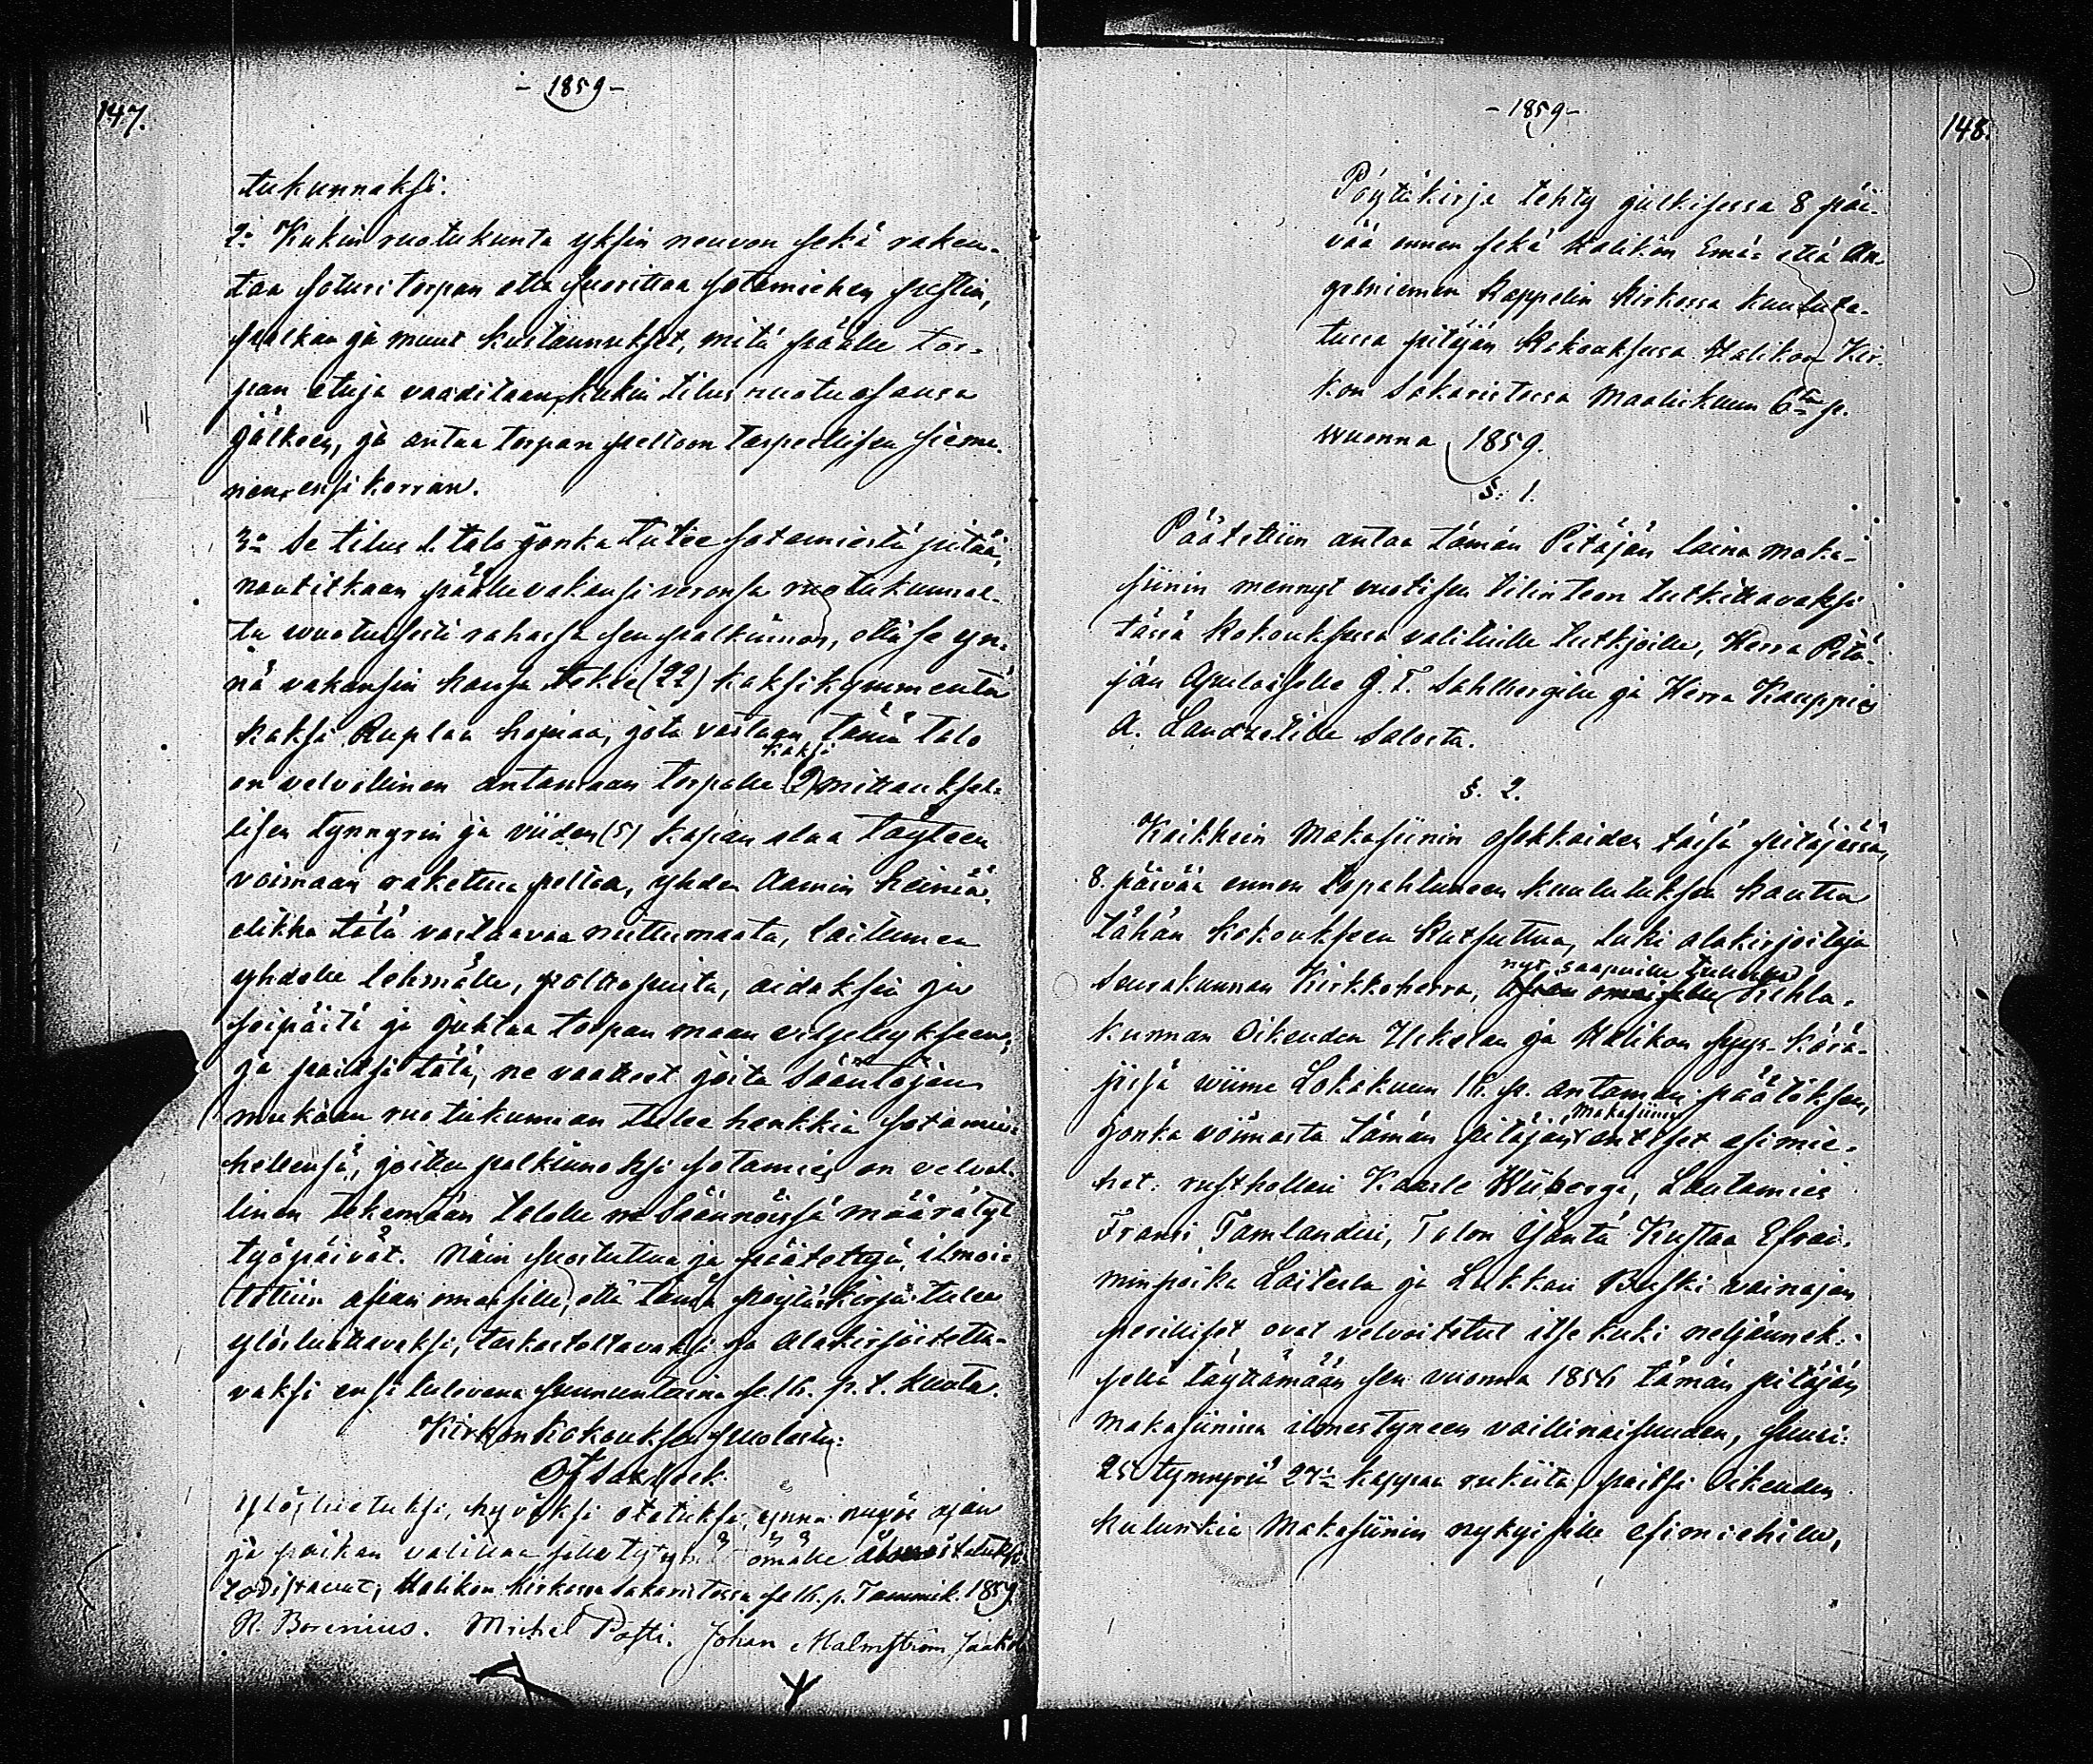 147.
- 1859 -
tukunnaksi.
2:o Kukin ruotukunta yksin neuvon sekä raken-
taa soturi torpan että suorittaa sotamiehen pestin,
palkan ja muut kustannukset, mitä päälle tor-
pan etuja vaaditaan, kukin tilus ruotu osansa
jälkeen, ja antaa torpan peltoon tarpeellisen sieme-
nen, ensi kerran.
3:o Se tilus l. talo jonka tulee sotamiestä pitää,
nautitkaan päälle vakansi veronsa ruotukunnal-
ta wuotuisesti rahassa sen palkinnon, että se yn-
nä vakansin kanssa tekee (22) kaksikymmentä
kaksi Ruplaa hopiaa, jota vastaan tämä talo
on velvollinen antamaan torpalle kaksi (2) mittauksel-
lisen tynnyrin ja viiden (5) kapan alaa täyteen
voimaan rakettua peltoa, yhden Aamin heiniä,
elikka tätä vastaavaa niittumaata, laitumen
yhdelle lehmälle, polttopuita, aidaksia ja
seipäitä ja juhtaa torpan maan viljelykseen,
ja paitsi tätä, ne vaatteet joita Sääntöjen
mukaan ruotukunnan tulee hankkia sotamie-
hellensä, joitten palkinnoksi sotamies on velvol-
linen tekemään talolle ne Säännöissä määrätyt
työpäivät. Näin suostuttua ja päätettyä, ilmoi-
tettiin asian omaisille, että tämä pöytäkirja tulee
ylösluettavaksi, tarkastettavaksi ja alakirjoitetta-
vaksi ensi tulevana sunnuntaina se 16. p. t. kuuta.
Kirkon Kokouksen puolesta:
Ylösluetuksi, hyväksi otetuksi, ynnä myös ajan
ja paikan valittaa sille tyytymättömälle ilmoitetuksi
todistavat, Halikon kirkossa Sakaristossa se 16. p. Tammik. 1859.
N. Borenius. Michel Posti. Johan Malmström Jaakko
148.
- 1859 -
Pöytäkirja tehty julkisessa 8 päi-
vää ennen sekä Halikon Emä- että An-
gelniemen Kappelin kirkossa kuulute-
tussa pitäjän kokouksessa Halikon Kir-
kon Sakaristossa Maaliskuun 6:tena p.
wuonna 1859.
§. 1.
Päätettiin antaa tämän Pitäjän laina maka-
siinin mennyt vuotisen tilinteon tutkittavaksi
tässä kokouksessa valituille tutkijoille, Herra Pitä-
jän Apulaiselle J. T. Sahlbergille ja Herra Kauppies
A. Landzetille Salosta.
§. 2.
Kaikkein Makasiinin osakkaiden tässä pitäjässä,
8. päivää ennen tapahtuneen kuulutuksen kautta
tähän kokoukseen kutsuttua, luki alakirjoittaja
Seurakunnan Kirkkoherra, nyt saapuville tulleille Kihla-
kunnan Oikeuden Uskelan ja Halikon syys-Kärä-
jissä viime Lokakuun 16. p. antaman päätöksen,
jonka voimasta tämän pitäjän Makasiinin entiset esimie-
het: rusthollari Kaarle Wiiberg, Lautamies
Frans Tamlander, Talon Isäntä Kustaa Efrai-
minpoika Laiterla ja Lukkari Buski vainajan
perilliset ovat velvoitetut itse kuki neljännek-
sellä täyttämään sen vuonna 1856 tämän pitäjän
makasiinissa ilmestyneen vaillinaisuuden, suuri:
25 tynnyriä 27½ kappaa rukiita, paitsi Oikeuden
kulunkia Makasiinin nykyisille esimiehille,